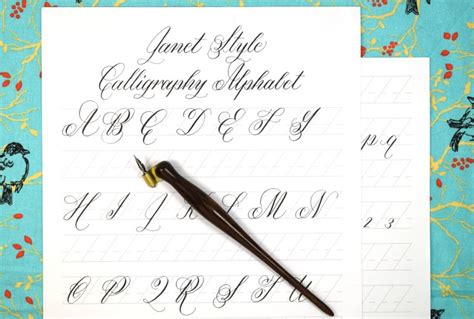 Janet Style
Calligraphy Alphabet
A B C D E F G
p q
H I J K L M N
2 3
O P Q R S T U